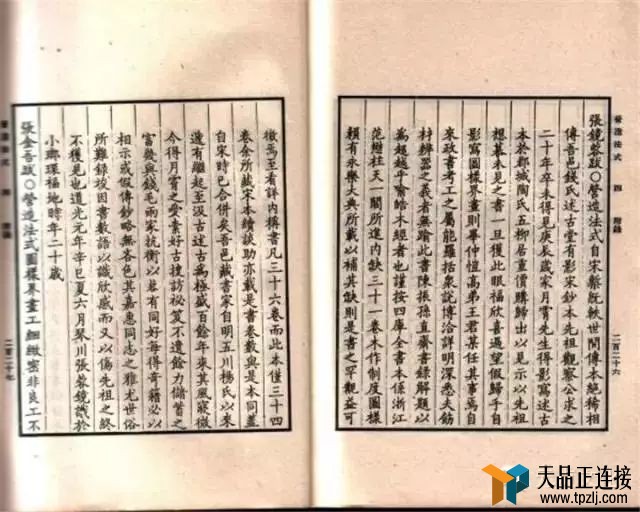 營造法式 四 附錄
二百二十六
張鏡蓉跋〇營造法式自宋槧旣軼世間傳本絕稀相
傳吾邑錢氏述古堂有影宋鈔本先祖觀察公求之
二十年卒未得見庚辰歲家月霄先生得影寫述古
本於郡城陶氏五柳居重價購歸出以見示以先祖
想慕未見之書一旦獲此眼福欣喜過望假歸手自
影寫圖樣界畫則畢仲愷高弟王君某任其事焉自
來政書考工之屬能羅括衆說博洽詳明深悉夫飭
材辨器之義者無踰此書陳振孫直齋書錄解題以
爲超越乎喻皓木經者也謹按四庫全書本係浙江
范懋柱天一閣所進內缺三十一卷木作制度圖樣
賴有永樂大典所載以補其缺則是書之罕觀益可
徵焉至看詳內稱書凡三十六卷而此本僅三十四
卷余所藏宋本續談助亦載是書卷數與是本同蓋
自宋時已合倂矣吾邑藏書家自明五川楊氏以來
遞有繼起至汲古述古爲極盛百餘年來其風寢微
今得月霄之愛素好古搜訪祕笈不遺餘力儲蓄之
富幾與錢毛兩家抗衡以蓉有同好每得奇籍必以
相示或假傳鈔略無吝色其嘉惠同志之雅尤世俗
所難錄竣因書數語以識欣感而又以傷先祖之終
不獲見也道光元年辛巳夏六月琴川張蓉鏡識於
小瑯環福地時年二十歲
張金吾跋〇營造法式圖樣界畫工細緻密非良工不
營造法式 四 附錄
二百二十七
天品正连接
www.tpzlj.com